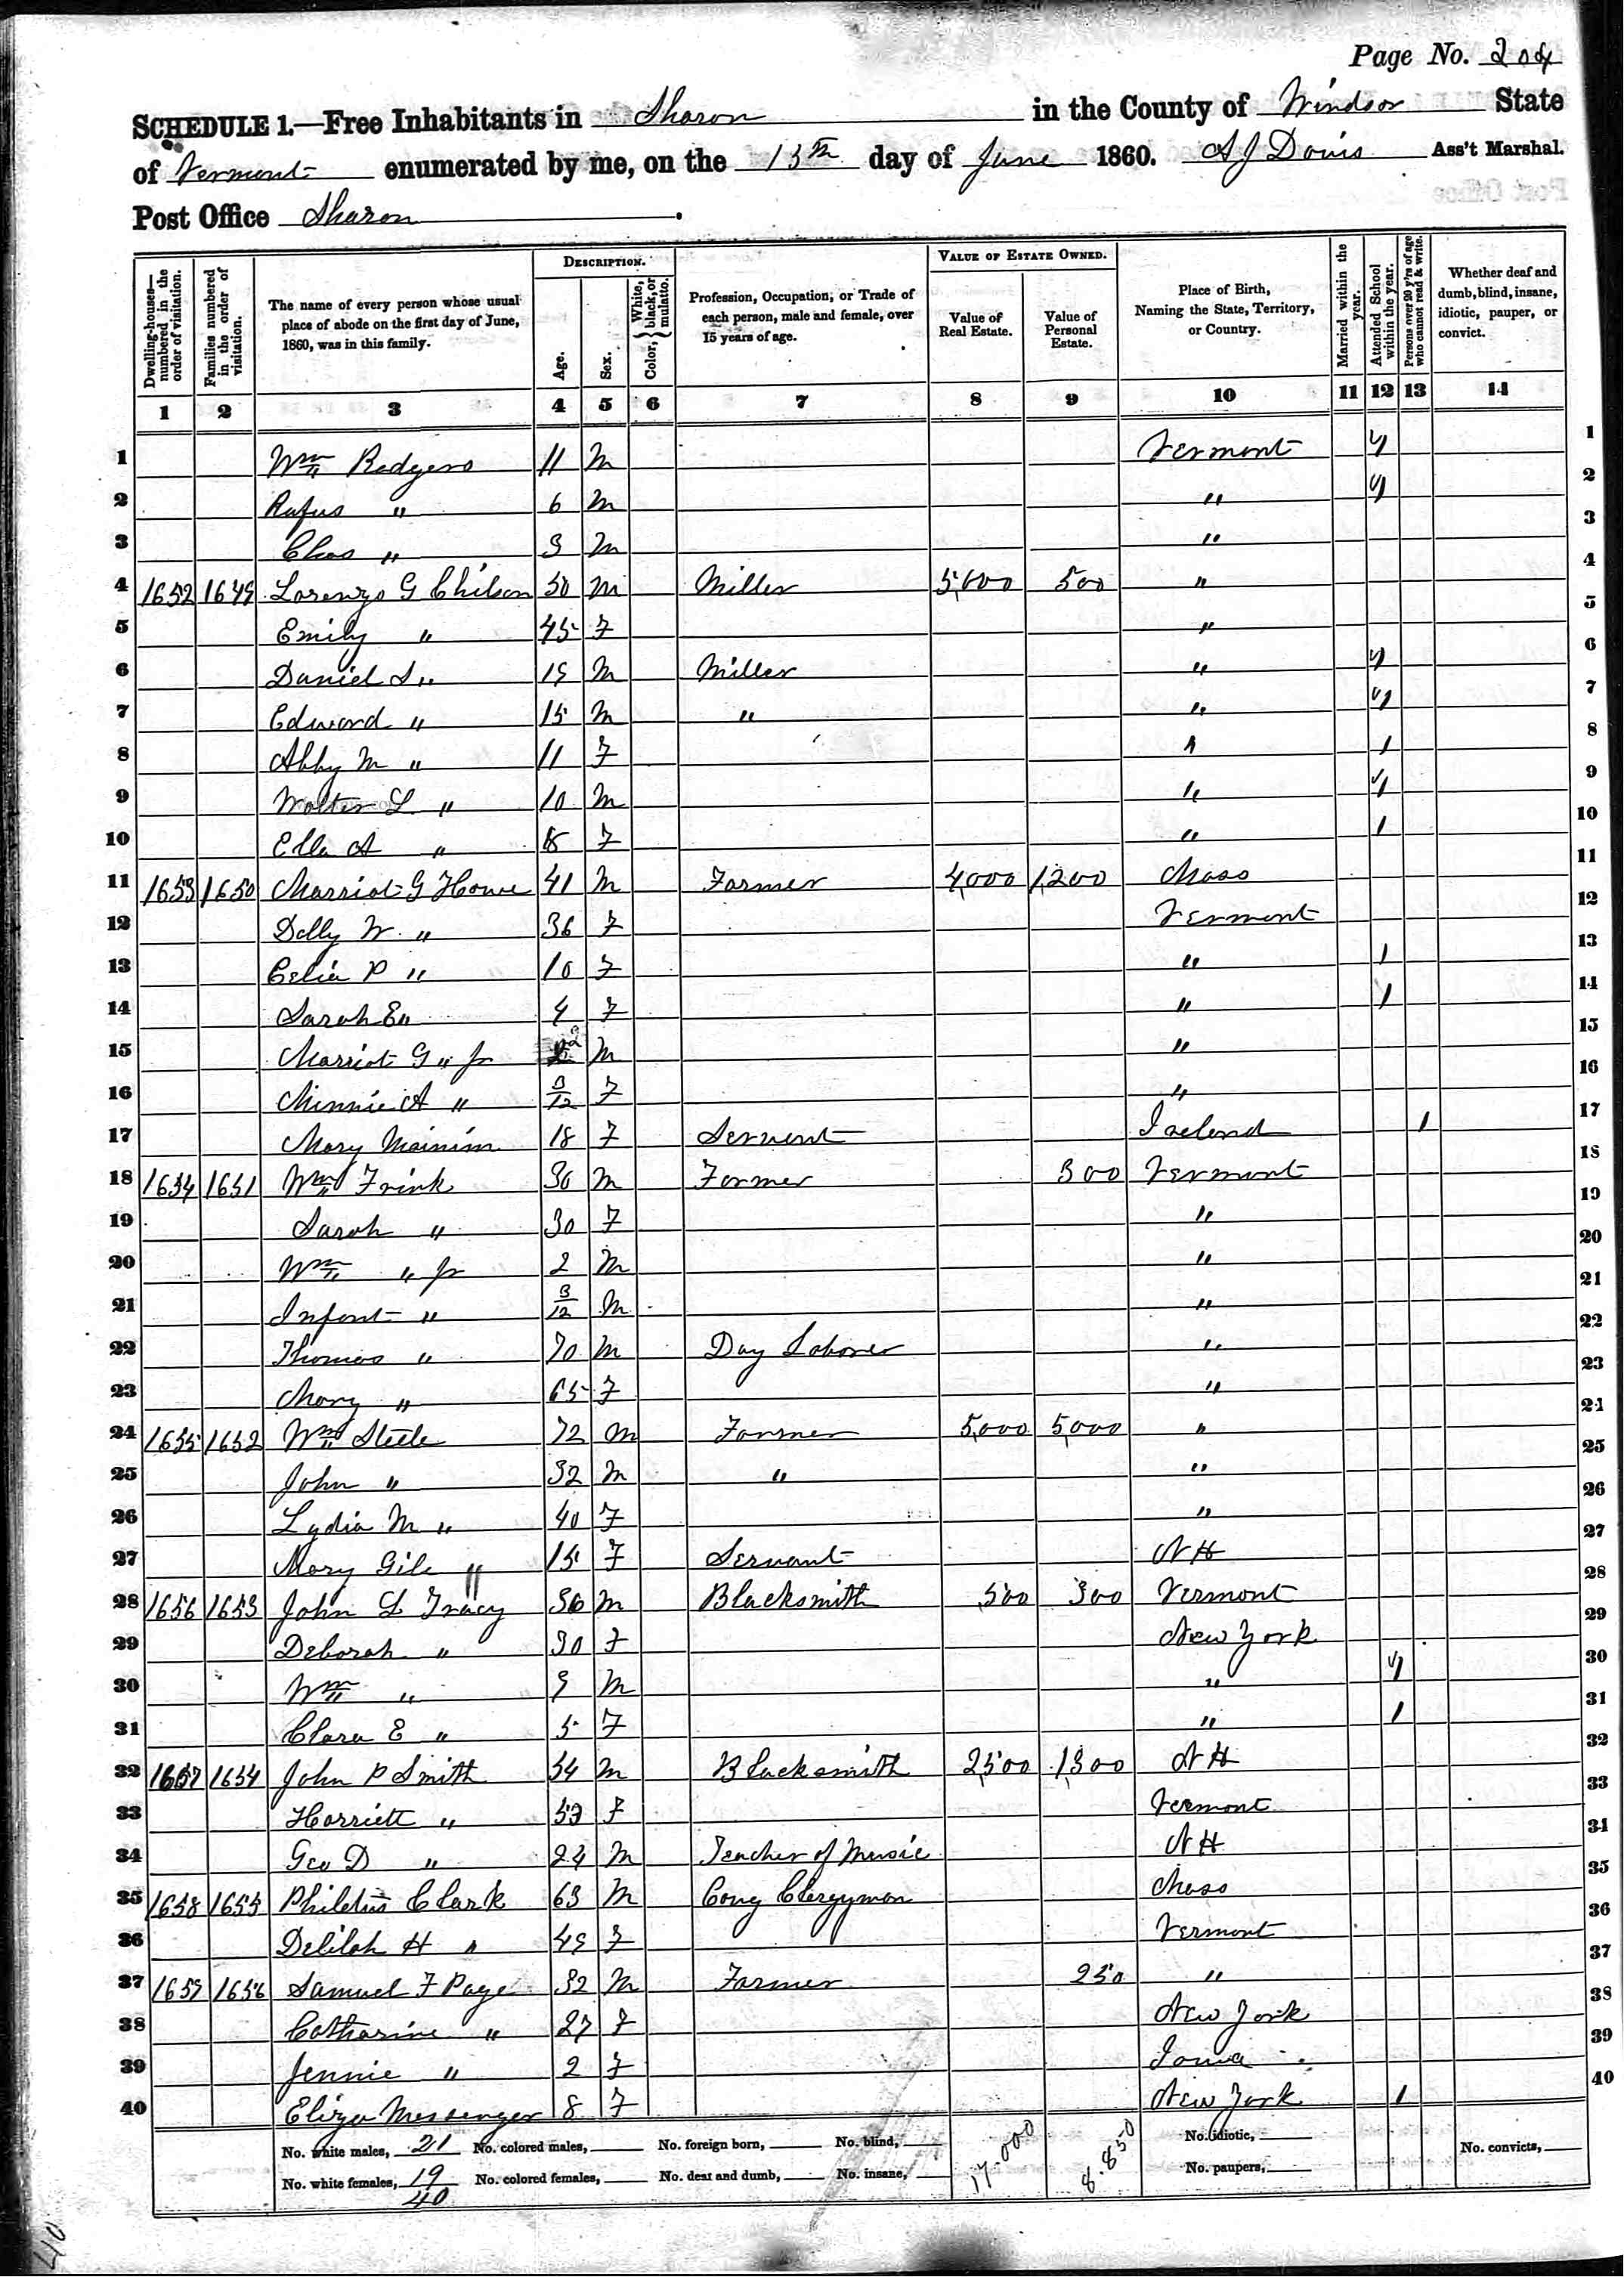 Page No. 204
SCHEDULE 1.—Free Inhabitants in Sharon in the County of Windsor State
of Vermont enumerated by me, on the 13th day of June 1860. A J Davis Ass't Marshal.
Post Office Sharon.
Dwelling-houses—numbered in the order of visitation. Families numbered in the order of visitation. The name of every person whose usual place of abode on the first day of June, 1860, was in this family. DESCRIPTION. Age. Sex. Color, { White, black, or mulatto. Profession, Occupation, or Trade of each person, male and female, over 15 years of age. VALUE OF ESTATE OWNED. Value of Real Estate. Value of Personal Estate. Place of Birth, Naming the State, Territory, or Country. Married within the year. Attended School within the year. Persons over 20 y'rs of age who cannot read & write. Whether deaf and dumb, blind, insane, idiotic, pauper, or convict.
1 2 3 4 5 6 7 8 9 10 11 12 13 14
1 Wm Rodgers 11 M Vermont 1 1
2 Rufus " 6 M " 1 2
3 Chas " 3 M " 3
4 1652 1649 Lorenzo G Chilson 50 M Miller 5,000 500 " 4
5 Emily " 45 F " 5
6 Daniel S " 19 M Miller " 1 6
7 Edward " 15 M " " 1 7
8 Abby M " 11 F " 1 8
9 Walter L " 10 M " 1 9
10 Ella A " 8 F " 1 10
11 1653 1650 Marriot G Howe 41 M Farmer 4,000 1,200 Mass 11
12 Dolly W. " 36 F Vermont 12
13 Celia P " 10 F " 1 13
14 Sarah E " 4 F " 1 14
15 Marriot G " Jr 2 M " 15
16 Minnie A " 3/12 F " 16
17 Mary 18 F Servent Ireland 1 17
18 1654 1651 Wm Frink 30 M Farmer 300 Vermont 18
19 Sarah " 30 F " 19
20 Wm " Jr 2 M " 20
21 Infant " 3/12 M " 21
22 Thomas " 70 M Day Laborer " 22
23 Mary " 65 F " 23
24 1655 1652 Wm Steele 72 M Farmer 5,000 5,000 " 24
25 John " 32 M " " 25
26 Lydia M " 40 F " 26
27 Mary Gile " 15 F Servant N H 27
28 1656 1653 John L Tracy 36 M Blacksmith 500 300 Vermont 28
29 Deborah " 30 F New York 29
30 Wm " 9 M " 1 30
31 Clara E " 5 F " 1 31
32 1657 1654 John P Smith 54 M Blacksmith 2,500 1,300 N H 32
33 Harriett " 53 F Vermont 33
34 Geo D " 24 M Teacher of Music N H 34
35 1658 1655 Philetus Clark 63 M Cong Clergyman Mass 35
36 Delilah H " 49 F Vermont 36
37 1659 1656 Samuel F Page 32 M Farmer 250 " 37
38 Catharine " 27 F New York 38
39 Jennie " 2 F Iowa 39
40 Eliza Messenger 8 F New York 1 40
No. white males, 21 No. colored males, No. foreign born, No. blind, 17.000 8.850 No. idiotic, No. convicts,
No. white females, 19 No. colored females, No. deaf and dumb, No. insane, No. paupers,
40
40